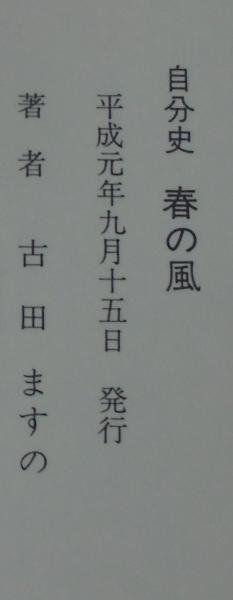 自分史 春の風
平成元年九月十五日 発行
著者 古田ますの